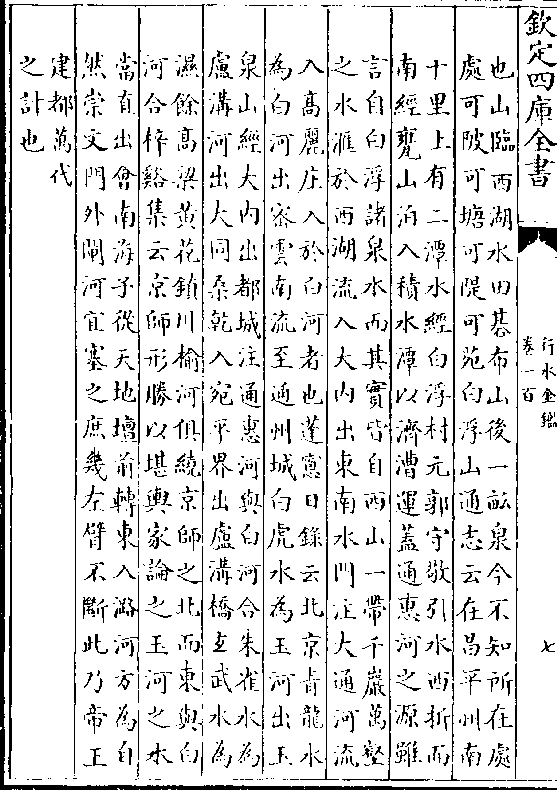 欽定四庫全書
行水金鑑
卷一百
七
也山臨西湖水田棊布山後一畝泉今不知所在處
處可陂可塘可隄可苑白浮山通志云在昌平州南
十里上有二潭水經白浮村元郭守敬引水西折而
南經甕山泊入積水潭以濟漕運蓋通惠河之源雖
言自白浮諸泉水而其實皆自西山一帶千巖萬壑
之水滙於西湖流入大内出東南水門注大通河流
入高麗庄入於白河者也蓬窻日錄云北京青龍水
為白河出宻雲南流至通州城白虎水為玉河出玉
泉山經大内出都城注通惠河與白河合朱雀水為
盧溝河出大同桑乾入宛平界出盧溝橋𤣥武水為
濕餘高梁黄花鎮川榆河俱繞京師之北而東與白
河合梓谿集云京師形勝以堪輿家論之玉河之水
當直出會南海子從天地壇前轉東入潞河方為自
然崇文門外閘河宜塞之庶幾左臂不斷此乃帝王
建都萬代
之計也